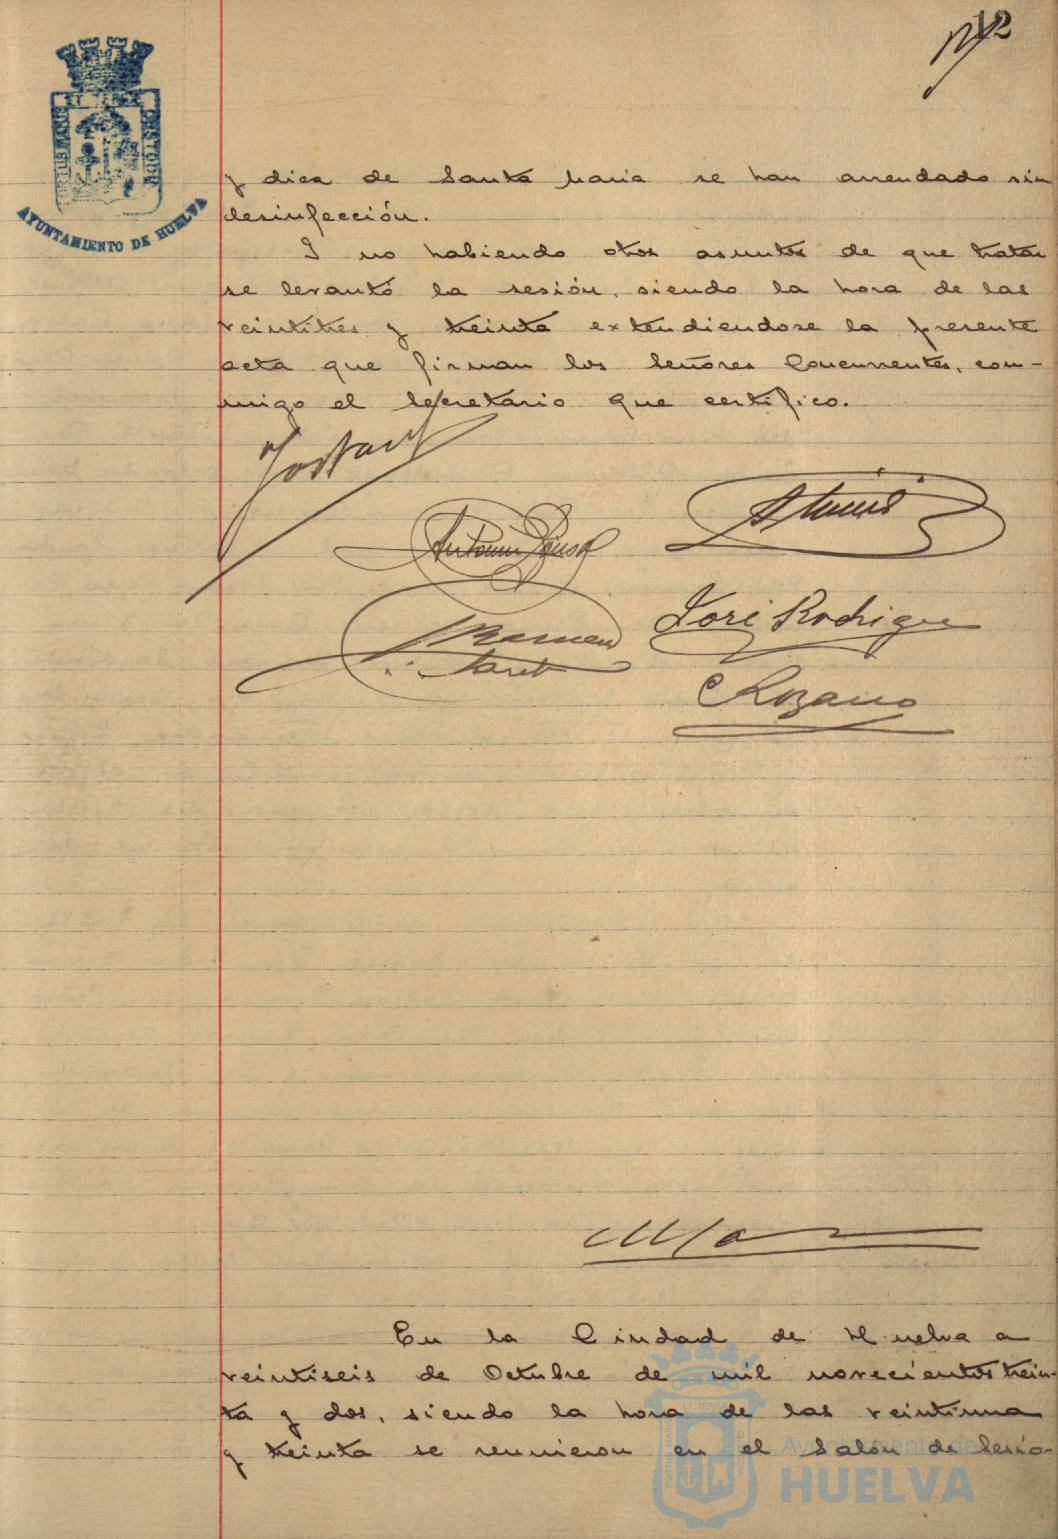 12
AYUNTAMIENTO DE HUELVA
y dica de Santa María se han arrendado sin
desinfección.
Y no habiendo otros asuntos de que tratar
se levantó la sesión, siendo la hora de las
veintitres y treinta extendiendose la presente
acta que firman los Señores Concurrentes, con-
migo el Secretario que certifico.
Antonio Ponsa
José Rodrigue
Ramon
Lozano
En la Ciudad de Huelva a
veintiseis de Octubre de mil novecientos trein-
ta y dos, siendo la hora de las veintiuna
y treinta se reunieron en el Salón de Sesio-
Ayuntamiento de
HUELVA